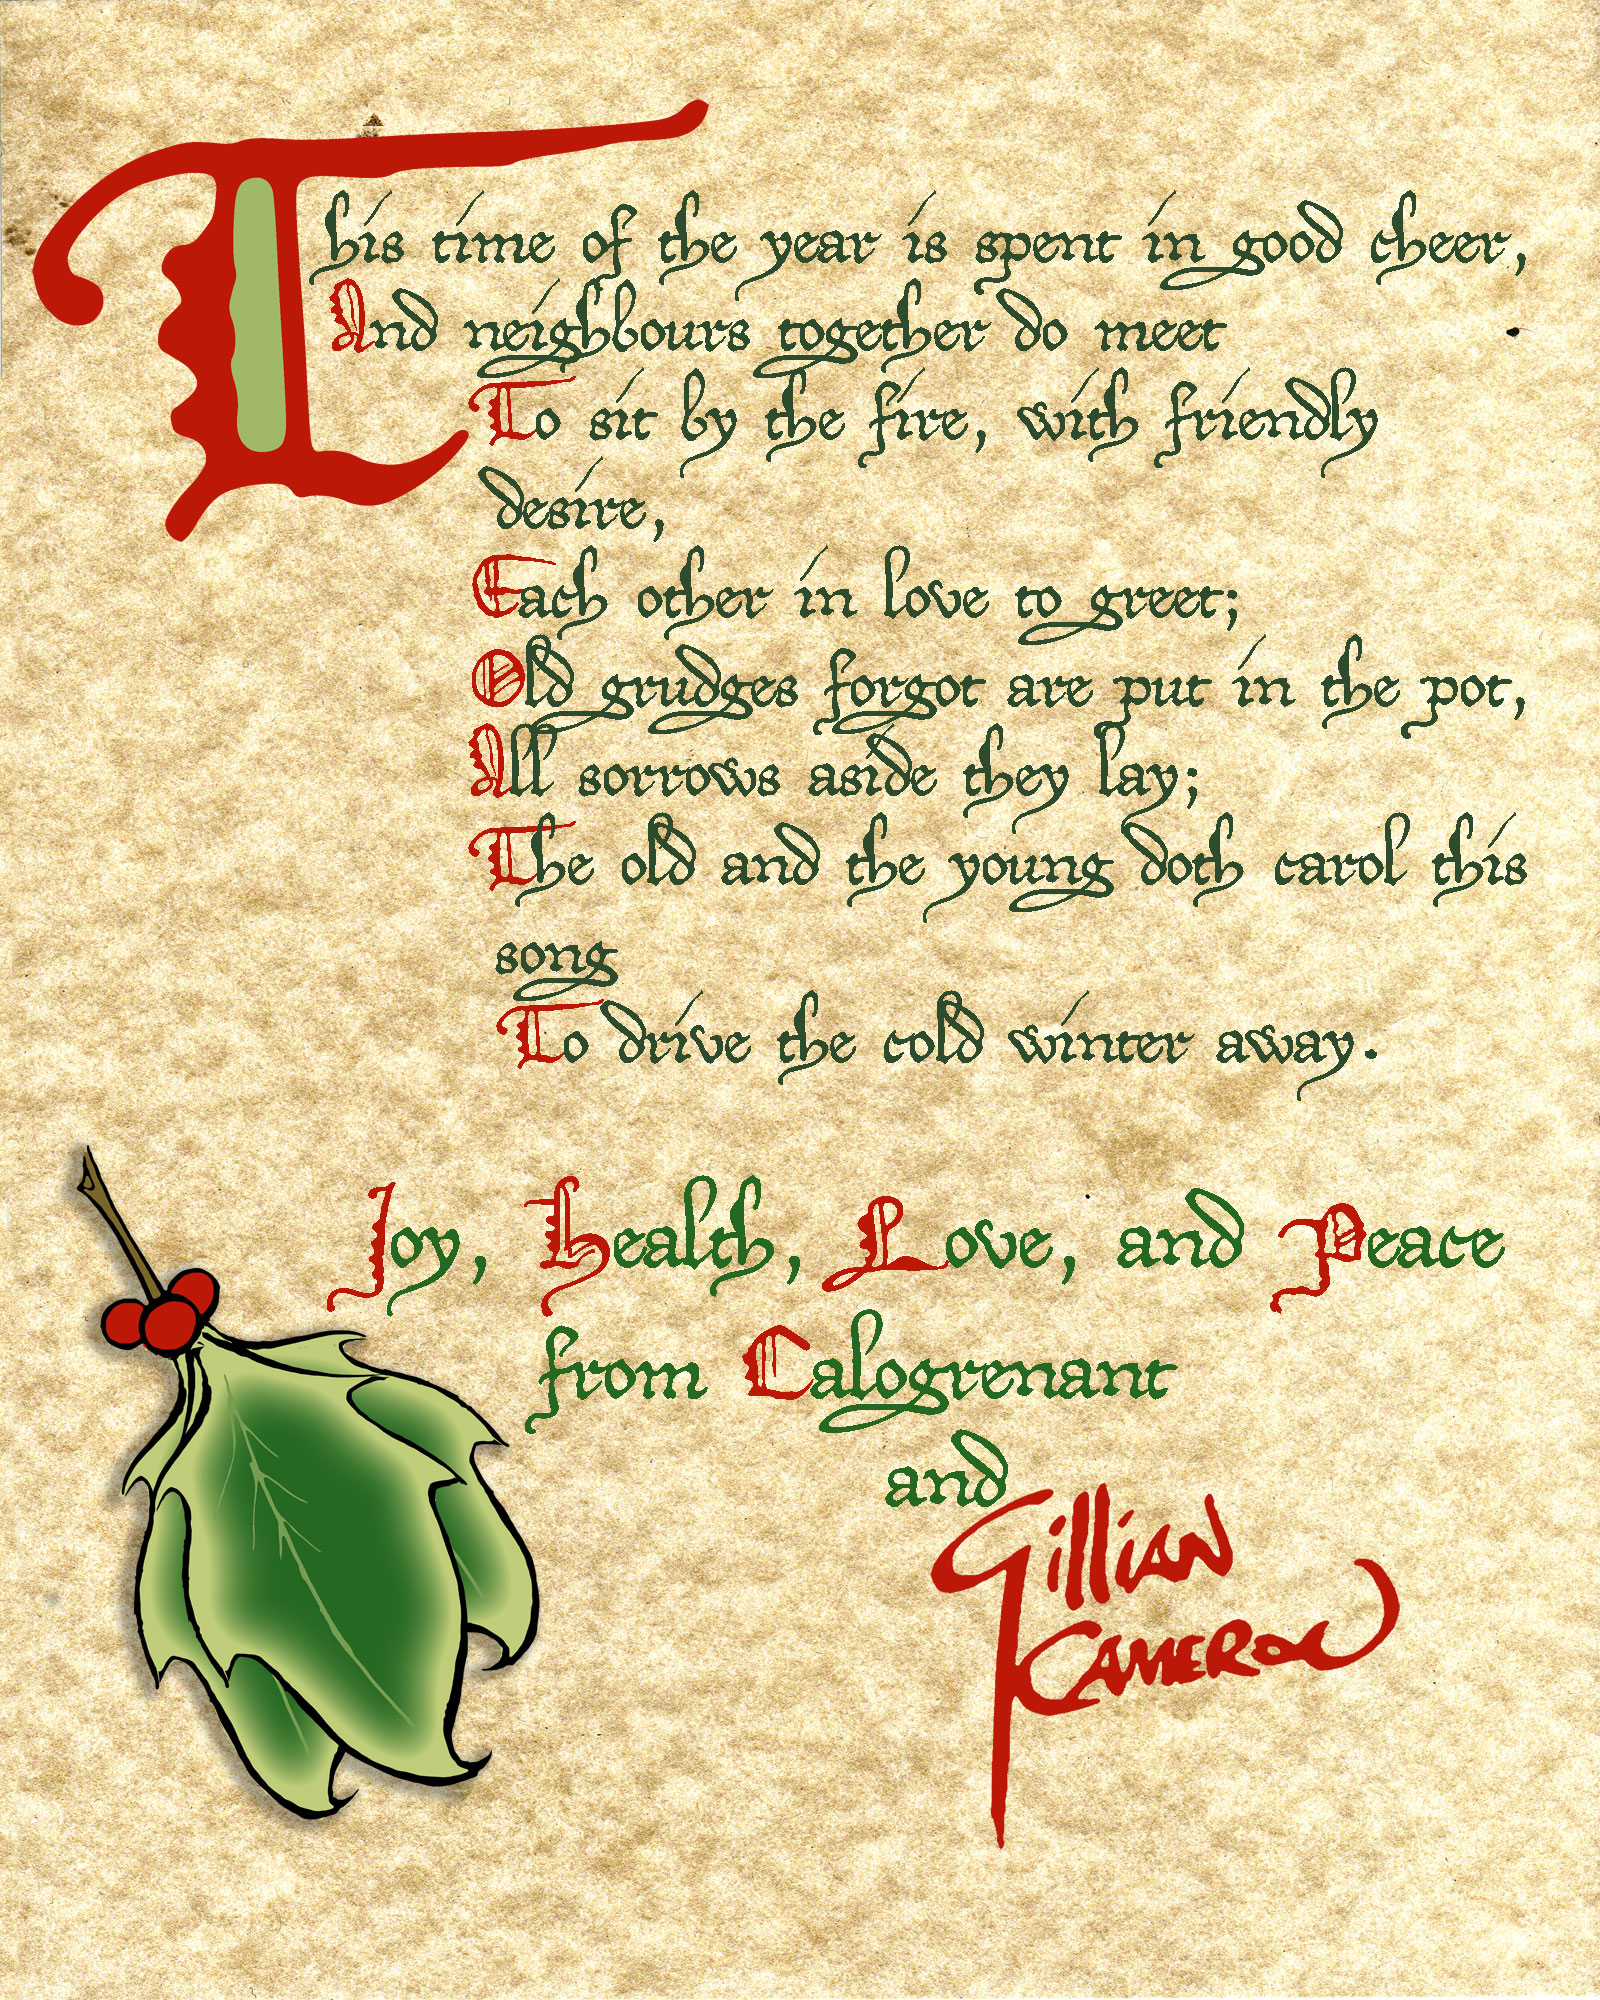 This time of the year is spent in good cheer,
And neighbours together do meet
To sit by the fire, with friendly
desire,
Each other in love to greet;
Old grudges forgot are put in the pot,
All sorrows aside they lay;
The old and the young doth carol this
song
To drive the cold winter away.
Joy, Health, Love, and Peace
from Calogrenant
and
Gillian
Cameron